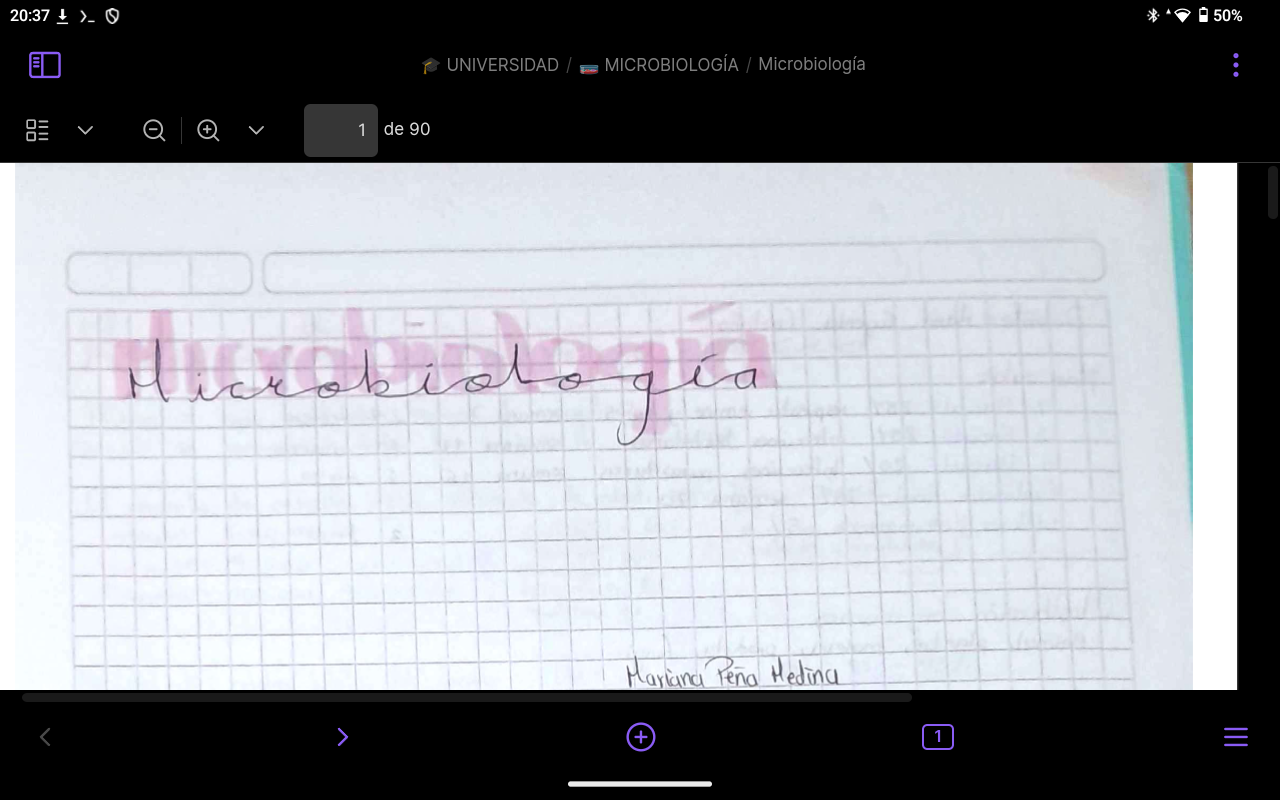 20:37 50%
🎓 UNIVERSIDAD / 🧫 MICROBIOLOGÍA / Microbiología
1 de 90
Microbiología
Mariana Peña Medina
1